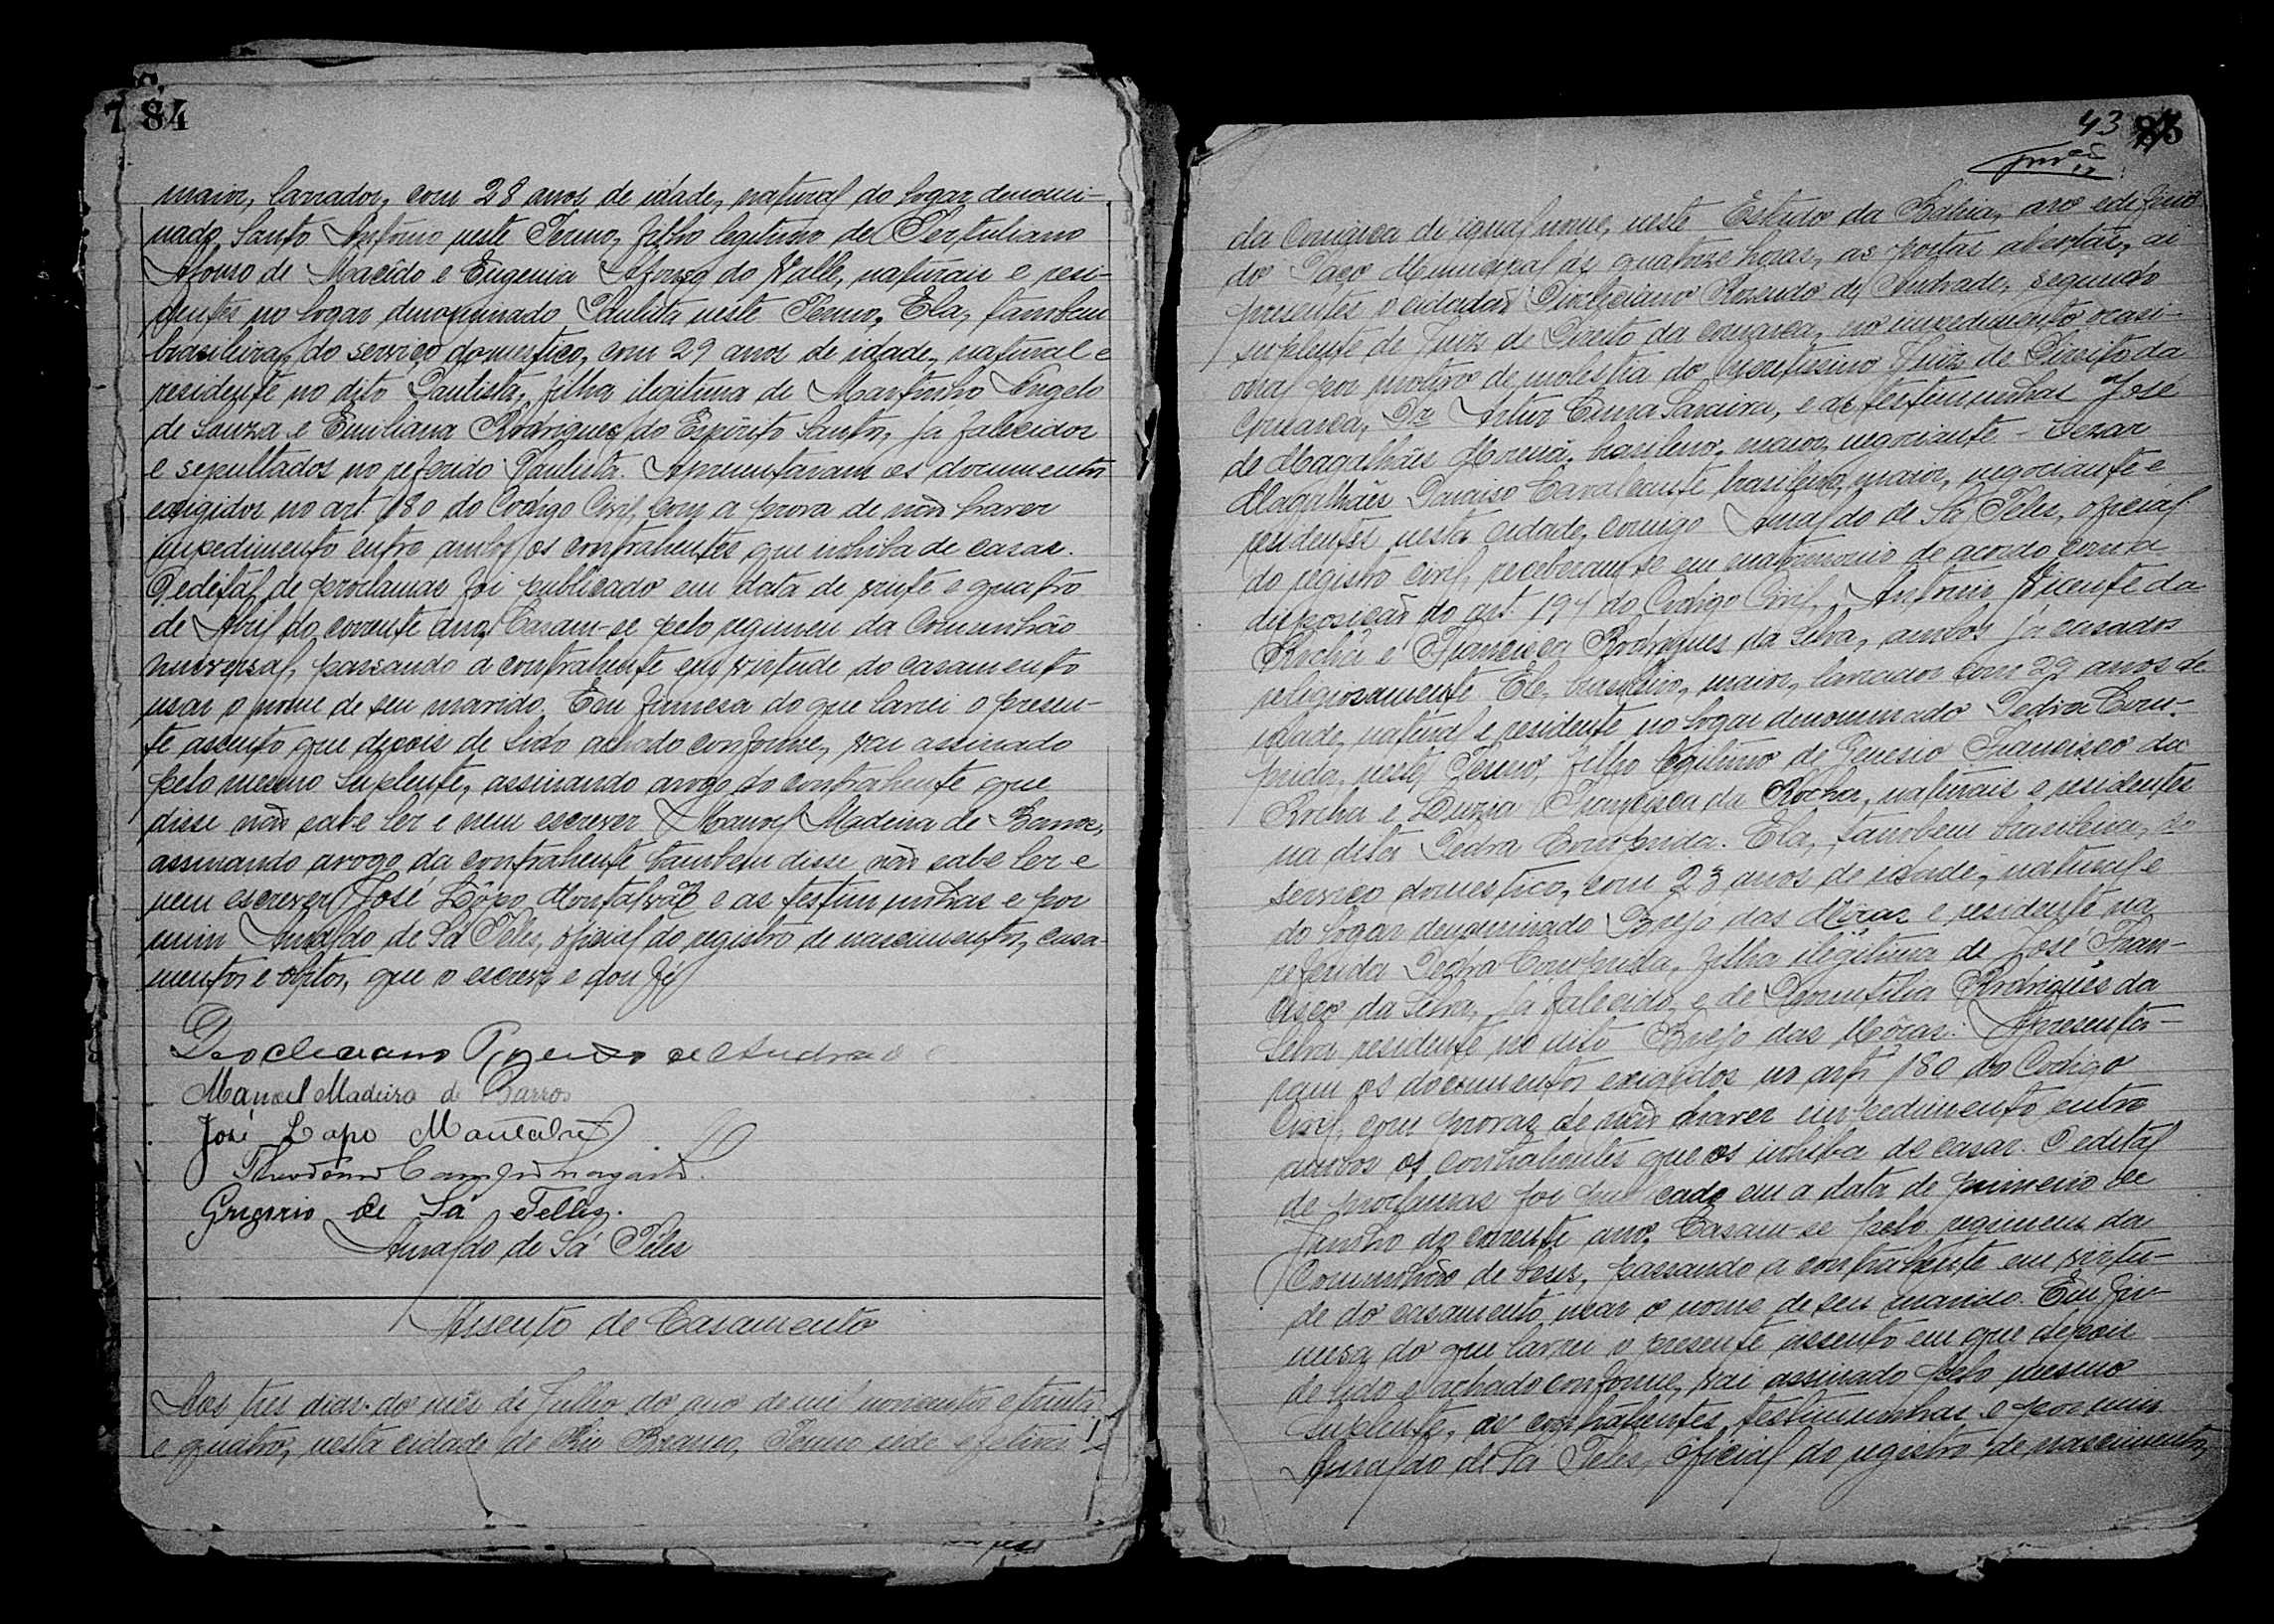 84
maior, lavrador, com 28 anos de idade, natural do logar denomi-
nado Santo Antonio neste Termo, filho legitimo de Tertuliano
Afonso de Macêdo e Eugenia Afonso do Valle, naturais e resi-
dentes no logar denominado Paulista neste Termo, Ela, tambem
brasileira, do serviço domestico, com 29 anos de idade, natural e
residente no dito Paulista, filha ilegitima de Martinho Angelo
de Souza e Emiliana Rodrigues do Espirito Santo, já falecidos
e sepultados no referido Paulista. Apresentaram os documentos
exigidos no art. 180 do Codigo Civil, com a prova de não haver
impedimento entre ambos os contrahentes que inhiba de casar.
O edital de proclamas foi publicado em data de vinte e quatro
de Abril do corrente ano. Casam-se pelo regimen da Comunhão
universal, passando a contrahente em virtude do casamento
usar o nome de seu marido. Em firmesa do que lavrei o presen-
te assento que depois de lido achado conforme, vai assinado
pelo mesmo suplente, assinando arogo do contrahente que
disse não sabe ler e nem escrever Manoel Madeira de Barros,
assinando arogo da contrahente tambem disse não sabe ler e
nem escrever José Lôpo Montalvão e as testimunhas e por
mim Arnaldo de Sá Téles, oficial do registro de nascimentos, casa-
mentos e obitos, que o escrevi e dou fé
Deocleciano Rozendo de Andrade
Manoel Madeira de Barros
José Lopo Montalvão
Gregorio de Sá Telles.
Arnaldo de Sá Téles
Assento de Casamento
Aos tres dias do mês de Julho do ano de mil novecentos e trinta
e quatro, nesta cidade de Rio Branco, Termo sede efetivo
43
da Comarca de igual nome, neste Estado da Bahia, ao edificio
do Paço Municipal ás quatorze horas, as portas abertas, ai
presentes o cidadão Diocleciano Rozendo de Andrade, segundo
suplente de Juiz de Direito da comarca, no impedimento ocasi-
onal por motivo de molestia do Juiz de Direito da
Comarca, Dr Artur Saraiva, e as testimunhas José
de Magalhães brasileiro, maior, negociante Cezar
Magalhães Cavalcante brasileiro, maior, negociante e
residentes nesta cidade, comigo Arnaldo de Sá Téles, oficial
do registro civil, receberam-se em matrimonio de acordo com a
disposição do art. 194 do Codigo Civil, Antonio Vicente da
Rocha e Francisca Rodrigues da Silva, ambos já casados
religiosamente. Ele, brasileiro, maior, lavrador com 29 anos de
idade, natural e residente no logar denominado Pedra Com-
prida, neste Termo, filho legitimo de Genesio Francisco da
Rocha e Luzia Francisca da Rocha, naturais e residentes
na dita Pedra Comprida. Ela, tambem brasileira, do
serviço domestico, com 23 anos de idade, natural e
do logar denominado Brejo das Môças e residente na
referida Pedra Comprida, filha ilegitima de José Fran-
cisco da Silva, já falecido e de Rodrigues da
Silva residente no dito Brejo das Môças. Apresenta-
ram os documentos exigidos no art. 180 do Codigo
Civil, com provas de não haver impedimento entre
ambos os contrahentes que os inhiba de casar. O edital
de proclamas foi publicado em a data de primeiro de
Junho do corrente ano. Casam-se pelo regimem da
Comunhão de bens, passando a contrahente em virtu-
de do casamento usar o nome de seu marido. Em fir-
mesa do que lavrei o presente assento em que depois
de lido e achado conforme, vai assinado pelo mesmo
suplente, os contrahentes, testimunhas e por mim
Arnaldo de Sá Téles, oficial do registro de nascimentos,